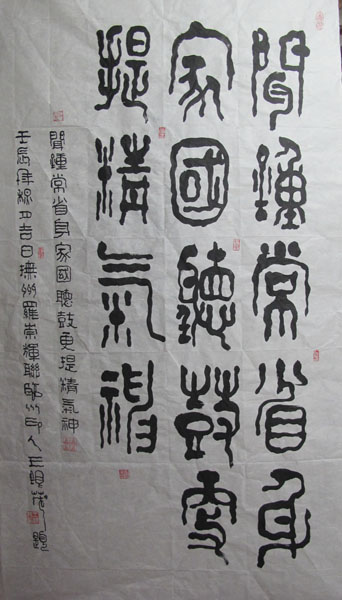 聞鐘常省身
家國聽鼓更
提精氣神
聞鐘常省身家國聽鼓更提精氣神
壬辰年吉日撫州羅崇輝聯臨川印人王題